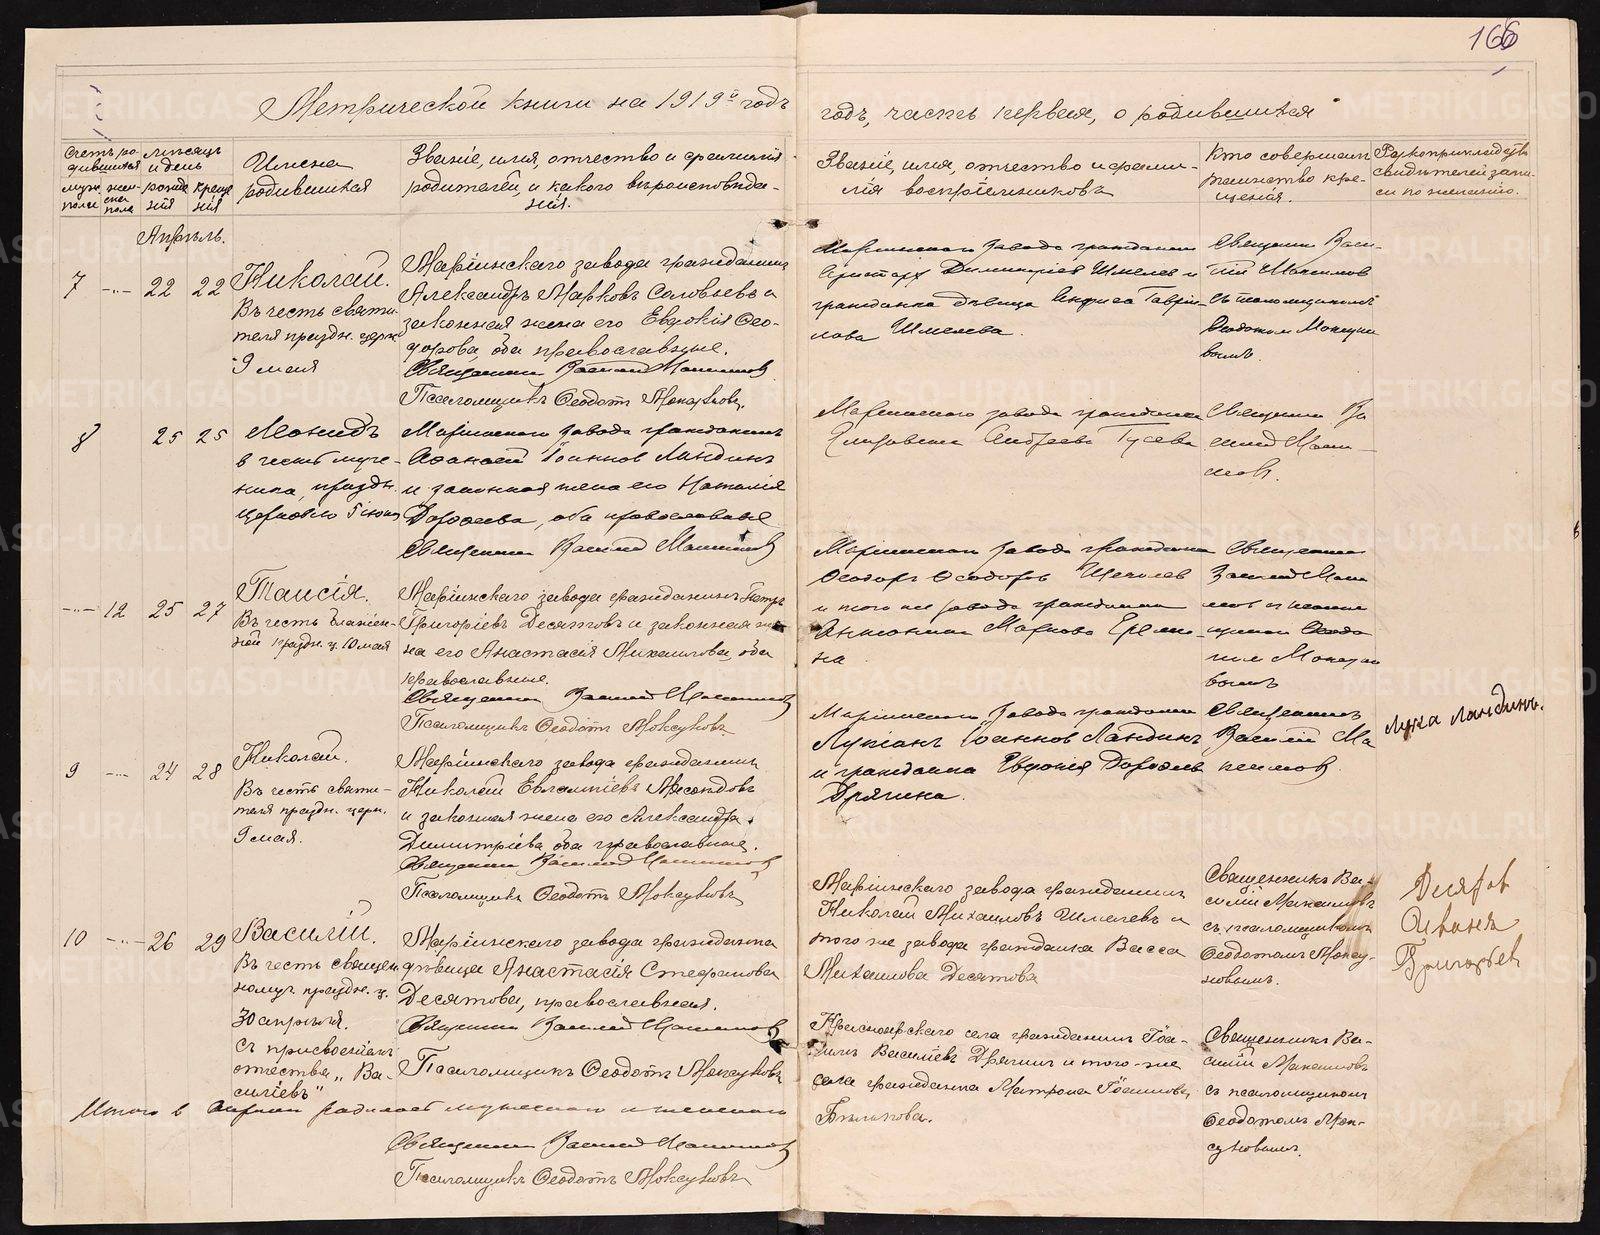 166
Метрической книги на 1919й годъ
годъ, часть первая, о родившихся
Счетъ ро-
дившихся
муж. жен-
пола ска
пола
Мѣсяцъ
и день
рожде креще
нія нія
Имена
родившихся
Званіе, имя, отчество и фамилія
родителей, и какого вѣроисповѣда-
нія.
Званіе, имя, отчество и фами-
лія воспріемниковъ
Кто совершалъ
таинство кре-
щенія.
Рукоприкладство
свидѣтелей запи-
си по желанію.
Апрѣль.
7 -"- 22 22
Николай.
Въ честь святи-
теля праздн. церк
9 мая
Маріинскаго завода гражданинъ
Александръ Марковъ Соловьевъ и
законная жена его Евдокія Ѳео-
дорова, оба православные.
Священникъ Василій Максимовъ
Псаломщикъ Ѳеодотъ Мокеуновъ
Маріинскаго завода гражданинъ
Аристархъ Димитріевъ Шмелевъ и
гражданка дѣвица Анфиса Гаврі-
лова Шмелева.
Священникъ Васи-
лій Максимовъ
съ псаломщикомъ
Ѳеодотомъ
8 25 25
Леонидъ
в честь муче-
ника, праздн.
церковію 5 іюня
Маріинскаго завода гражданинъ
Аѳанасій Іоанновъ Ландинъ
и законная жена его Наталія
Дороѳеева, оба православные
Священникъ Василій Максимовъ
Маріинскаго завода гражданка
Елизавета Андреева Гусева
Священникъ Ва
силій Макси-
мовъ.
-"- 12 25 27
Таисія.
Въ честь блажен-
ной праздн. ц. 10 мая
Маріинскаго завода гражданинъ Петръ
Григоріевъ Десятовъ и законная же-
на его Анастасія Михаилова, оба
православные.
Священникъ Василій Максимовъ
Псаломщикъ Ѳеодотъ
Маріинскаго завода гражданинъ
Ѳеодоръ Ѳеодоровъ
и того же завода гражданка
Антонина Маркова Ереми-
на
Священникъ
Василій Макси
мовъ и псалом
щикъ Ѳеодо
томъ
9 -"- 24 28
Николай.
Въ честь святи-
теля праздн. церк.
9 мая.
Маріинскаго завода гражданинъ
Николай Евлампіевъ
и законная жена его Александра
Димитріева, оба православные.
Священникъ Василій Максимовъ
Псаломщикъ Ѳеодотъ
Маріинскаго завода гражданинъ
Лукіанъ Іоанновъ Ландинъ
и гражданка Евдокія Дороѳеева
Дрягина.
Священникъ
Василій Ма
ксимовъ
Лука Ландинъ.
10 -"- 26 29
Василій.
Въ честь священ
номуч. праздн. ц.
30 апрѣля.
Съ присвоеніемъ
отчества „Ва-
силіевъ"
Маріинскаго завода гражданка
дѣвица Анастасія Стефанова
Десятова, православная.
Священникъ Василій Максимовъ
Псаломщикъ Ѳеодотъ
Маріинскаго завода гражданинъ
Николай Михаиловъ Шмелевъ и
того же завода гражданка Васса
Михаилова Десятова
Священникъ Ва-
силій Максимовъ
съ псаломщикомъ
Ѳеодотомъ
Десятов
Григорьев
Красноярскаго села гражданинъ Іоа-
ннъ Василіевъ Дрягинъ и того-же
села гражданка Матрона Іоаннова
Бѣлькова.
Священникъ Ва-
силій Максимовъ
съ псаломщикомъ
Ѳеодотомъ
Итого в апреле родилось мужескаго и женскаго
Священникъ Василій Максимовъ
Псаломщикъ Ѳеодотъ
METRIKI.GASO-URAL.RU